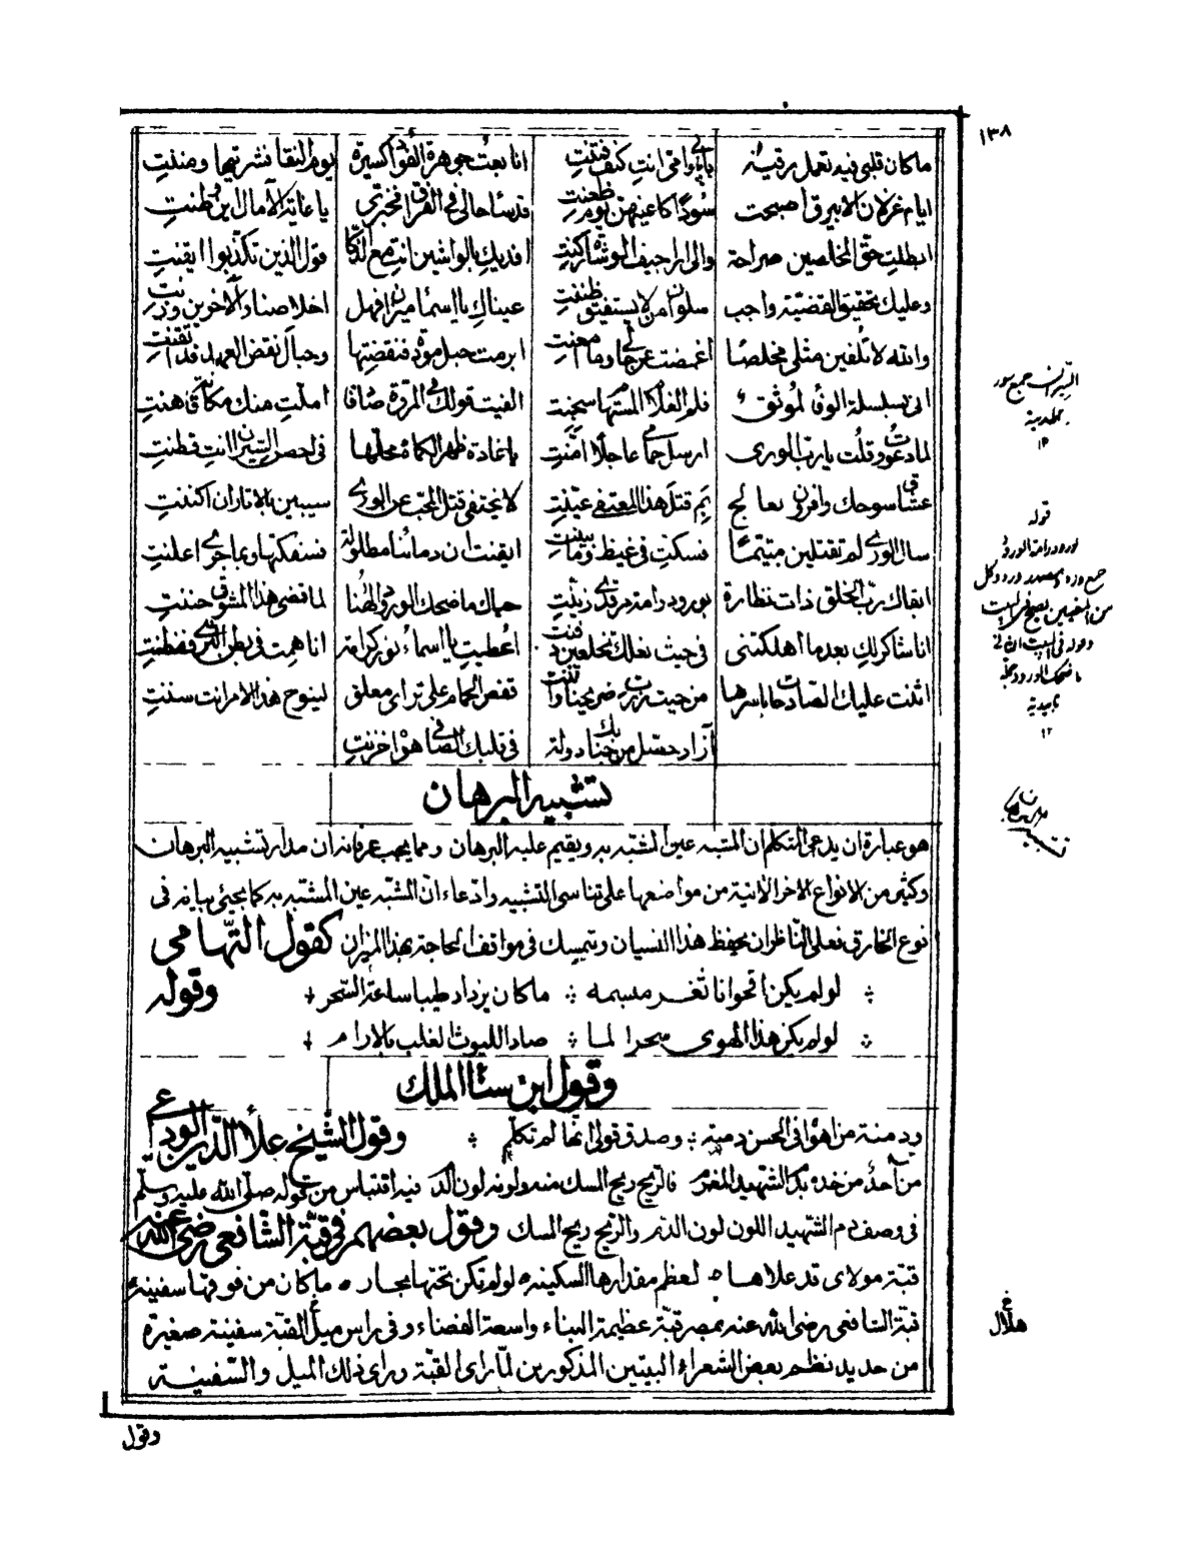 ١٣٨
ما كان قلبي فيه تعمل رقية بابي وامي انت كيف فتنت انا بعت جوهرة الفؤاد كسيرة يوم النقا نشريتها ومننت
ايام غزلان الابيرق اصبحت سودا كاعينهن يوم ظعنت قد ساء حالي في الفراق فخبري يا غاية الآمال اين قطنت
ابطلت حق المخلصين صراحة والى اراجيف الوشاة ركنت افديك بالواشين انت مع الذكا قول الذين تكذبوا ايقنت
وعليك تحقيق القضية واجب سلوان من لا يستفيق ظننت عيناك يا اسماء افهل اخلاصنا والآخرين وزنت
والله لا تلفين مثلي مخلصا اغمضت عن حالي وما امعنت ابرمت حبل مودة فنقضتها وحبال نقض العهد قد اتقنت
اني بسلسلة الوفاء لموثق فلم الفلاة المشتهاة سجنت الفيت قولك في المودة صادقا املت منك مكانتي فهنت
لما دعوت وقلت يا رب الورى ارسل حمامي عاجلا امنت يا غادة ظهر الكماة محلها في احصن النيران انت قطنت
عشاق سوحك وافرون بعالج بم قتل هذا المعتفى عينت لا يختفي قتل المحب عن الورى سيبين بالآثار ان اكننت
سال الورى لم تقتلين متيما فسكت في غيظ وما بينت ايقنت ان دماءنا مطلولة فسفكتها وبما جرى اعلنت
ابقاك رب الخلق ذات نظارة بورود رامة مرقدي زينت حياك ما ضحك الورود الهنا لما قضى هذا المشوق حننت
انا شاكر لك بعد ما اهلكتني في حيث نعلك تخلعين دفنت اعطيت يا اسماء نور كرامة انا همت في بطن الثرى ففطنت
اثنت عليك الصادحات باسرها من حيث زرت ضريحنا وأتنت قفص الحمام على ثراي معلق لينوح هذا الامر انت سننت
آزاد حصل من جنابك دولة في قلبك الصافي هواه خزنت
تشبيه البرهان
هو عبارة ان يدعي المتكلم ان المشبه عين المشبه به ويقيم عليه البرهان ومما يجب عرفانه ان مدار تشبيه البرهان
وكثير من الانواع الاخر الآتية من مواضعها على تناسي التشبيه وادعاء ان المشبه عين المشبه به كما يجيئ بيانه في
نوع الخارق فعلى الناظر ان يحفظ هذا النسيان ويتمسك في مواقف الحاجة بهذا الميزان كقول التهامي
لو لم يكن اقحوانا ثغر مبسمه ما كان يزداد طيبا ساعة السحر وقوله
لو لم يكن هذا الهوى سحرا لما صاد الليوث الغلب بالارام
وقول ابن سناء الملك
ودمنة من اهوا في الحسن دمية وصدق قولي انها لم تكلم وقول الشيخ علاء الدين الوداعي
من آخذ من خده بدم الشهيد المغرم فالريح ريح المسك منه ولونه لون الدم فيه اقتباس من قوله صلى الله عليه وسلم
في وصف دم الشهيد اللون لون الدم والريح ريح المسك وقول بعضهم في قبة الشافعي رضي الله عنه
قبة مولاي قد علاها لعظم مقدارها السكينه لو لم تكن تحتها بحار ما كان من فوقها سفينه
قبة الشافعي رضي الله عنه بمصر قبة عظيمة البناء واسعة الفضاء وفي راس ميل القبة سفينة صغيرة
من حديد نظم بعض الشعراء البيتين المذكورين لما راى القبة وراى ذلك الميل والسفينة
وقول
قوله
١٢